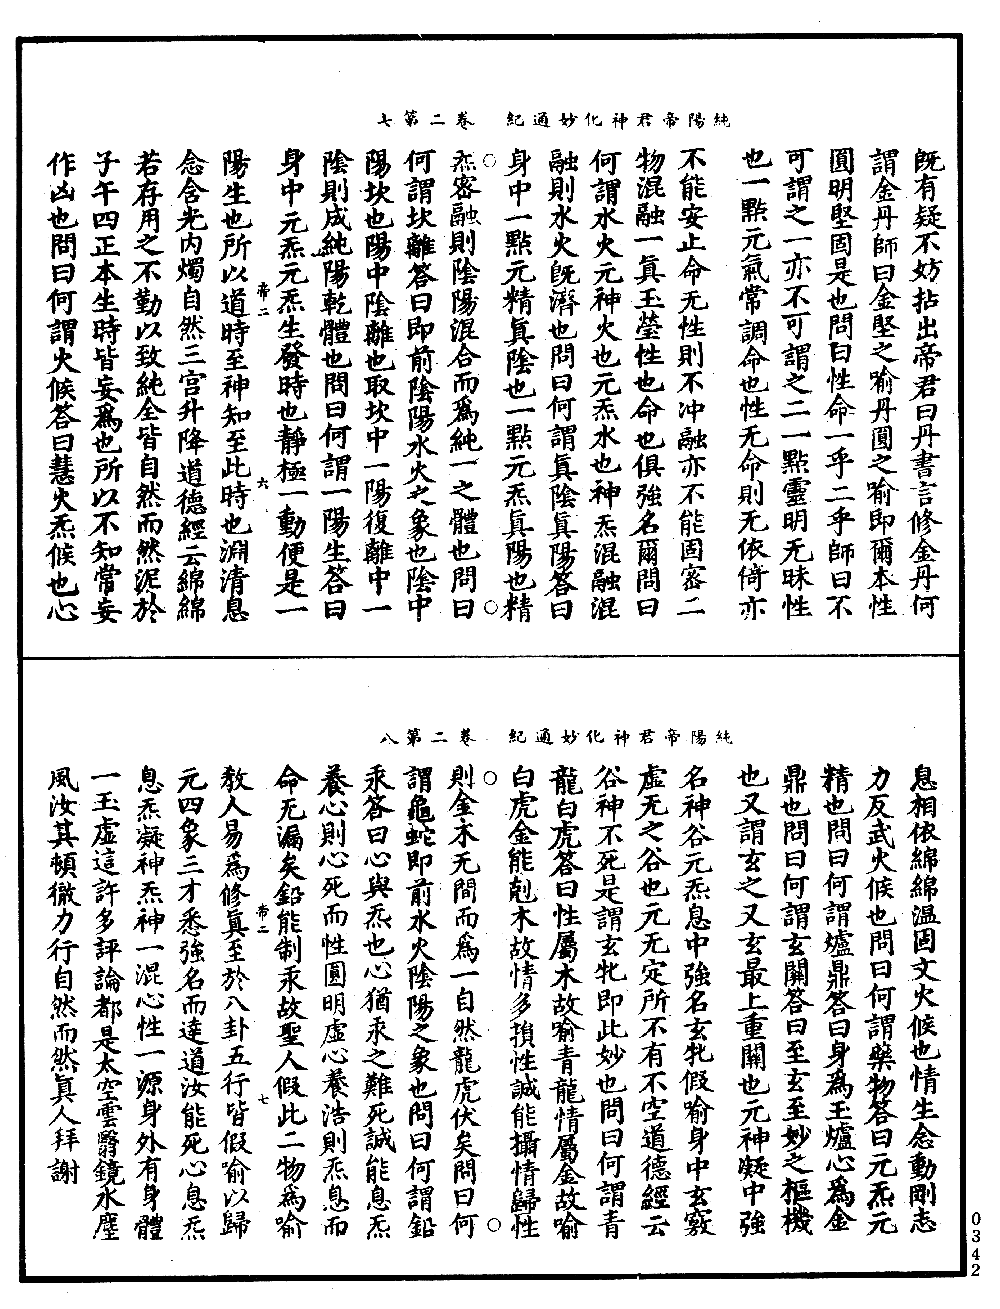 純陽帝君神化妙通紀　卷二第七
既有疑不妨拈出帝君曰丹書言修金丹何
謂金丹師曰金堅之喻丹圓之喻即爾本性
圓明堅固是也問曰性命一乎二乎師曰不
可謂之一亦不可謂之二一點靈明无昧性
也一點元氣常調命也性无命則无依倚亦
不能安止命无性則不冲融亦不能固密二
物混融一眞玉瑩性也命也俱強名爾問曰
何謂水火元神火也元炁水也神炁混融混
融則水火既濟也問曰何謂眞陰眞陽答曰
身中一點元精眞陰也一點元炁眞陽也精
炁密融則陰陽混合而爲純一之體也問曰
何謂坎離答曰即前陰陽水火之象也陰中
陽坎也陽中陰離也取坎中一陽復離中一
陰則成純陽乾體也問曰何謂一陽生答曰
身中元炁元炁生發時也靜極一動便是一
帝二　六
陽生也所以道時至神知至此時也淵清息
念含光内燭自然三宫升降道德經云綿綿
若存用之不勤以致純全皆自然而然泥於
子午四正本生時皆妄爲也所以不知常妄
作凶也問曰何謂火候答曰慧火炁候也心
純陽帝君神化妙通紀　卷二第八
息相依綿綿溫固文火候也情生念動剛志
力反武火候也問曰何謂藥物答曰元炁元
精也問曰何謂爐鼎答曰身爲玉爐心爲金
鼎也問曰何謂玄關答曰至玄至妙之樞機
也又謂玄之又玄最上重關也元神凝中強
名神谷元炁息中強名玄牝假喻身中玄竅
虛无之谷也元无定所不有不空道德經云
谷神不死是謂玄牝即此妙也問曰何謂青
龍白虎答曰性屬木故喻青龍情屬金故喻
白虎金能剋木故情多損性誠能攝情歸性
則金木无間而爲一自然龍虎伏矣問曰何
謂龜蛇即前水火陰陽之象也問曰何謂鉛
汞答曰心與炁也心猶汞之難死誠能息炁
養心則心死而性圓明虛心養浩則炁息而
命无漏矣鉛能制汞故聖人假此二物爲喻
帝二　七
教人易爲修眞至於八卦五行皆假喻以歸
元四象三才悉強名而達道汝能死心息炁
息炁凝神炁神一混心性一源身外有身體
一玉虛這許多評論都是太空雲翳鏡水塵
風汝其頓徹力行自然而然眞人拜謝
0342